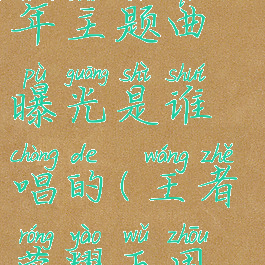 年主题曲
pù guāng shì shuí
曝光是谁
chàng de ( wáng zhě
唱的(王者
róng yào wǔ zhōu
荣耀五周